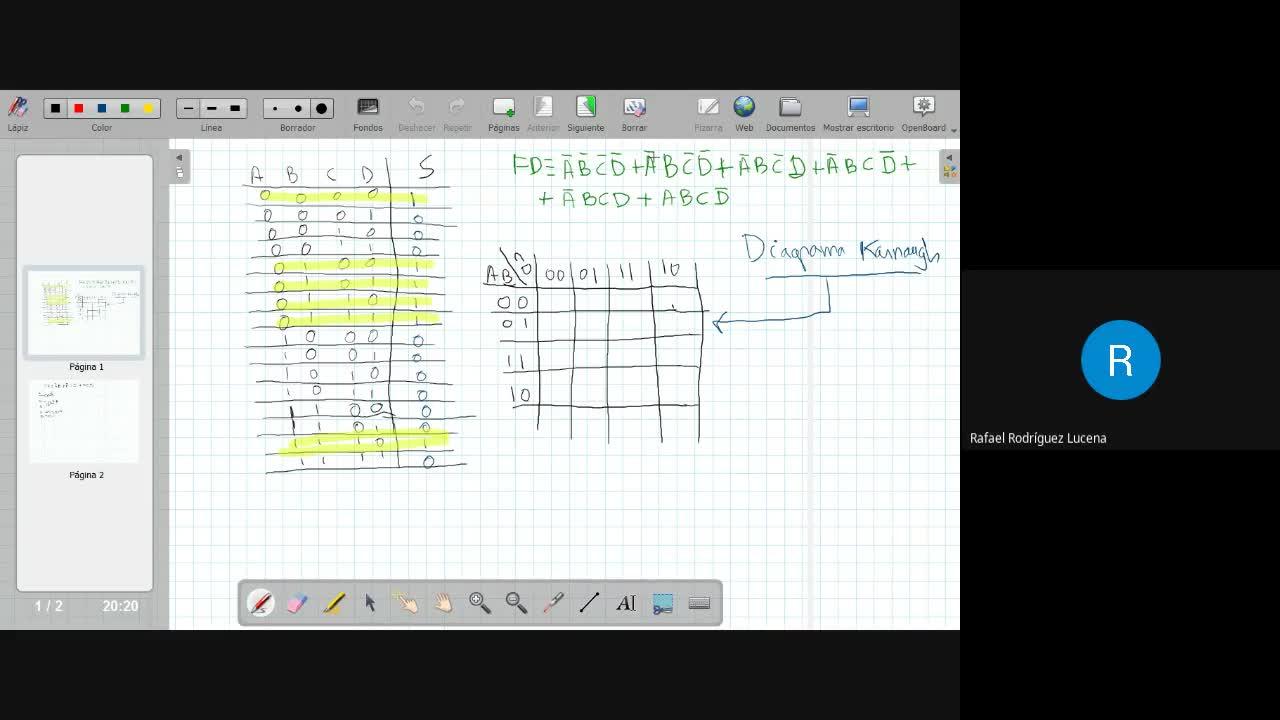 Lápiz Color Línea Borrador Fondos Deshacer Repetir Páginas Anterior Siguiente Borrar Pizarra Web Documentos Mostrar escritorio OpenBoard
A B C D S
0 0 0 0 1
0 0 0 1 0
0 0 1 0 0
0 0 1 1 0
0 1 0 0 1
0 1 0 1 1
0 1 1 0 1
0 1 1 1 1
1 0 0 0 0
1 0 0 1 0
1 0 1 0 0
1 0 1 1 0
1 1 0 0 0
1 1 0 1 0
1 1 1 0 1
1 1 1 1 0
FD= A̅B̅C̅D̅ + A̅BC̅D̅ + A̅BC̅D + A̅BCD̅ +
+ A̅BCD + ABCD̅
Diagrama Karnaugh
AB CD 00 01 11 10
00
01
11
10
Página 1
Página 2
1 / 2 20:20
AI
R
Rafael Rodríguez Lucena